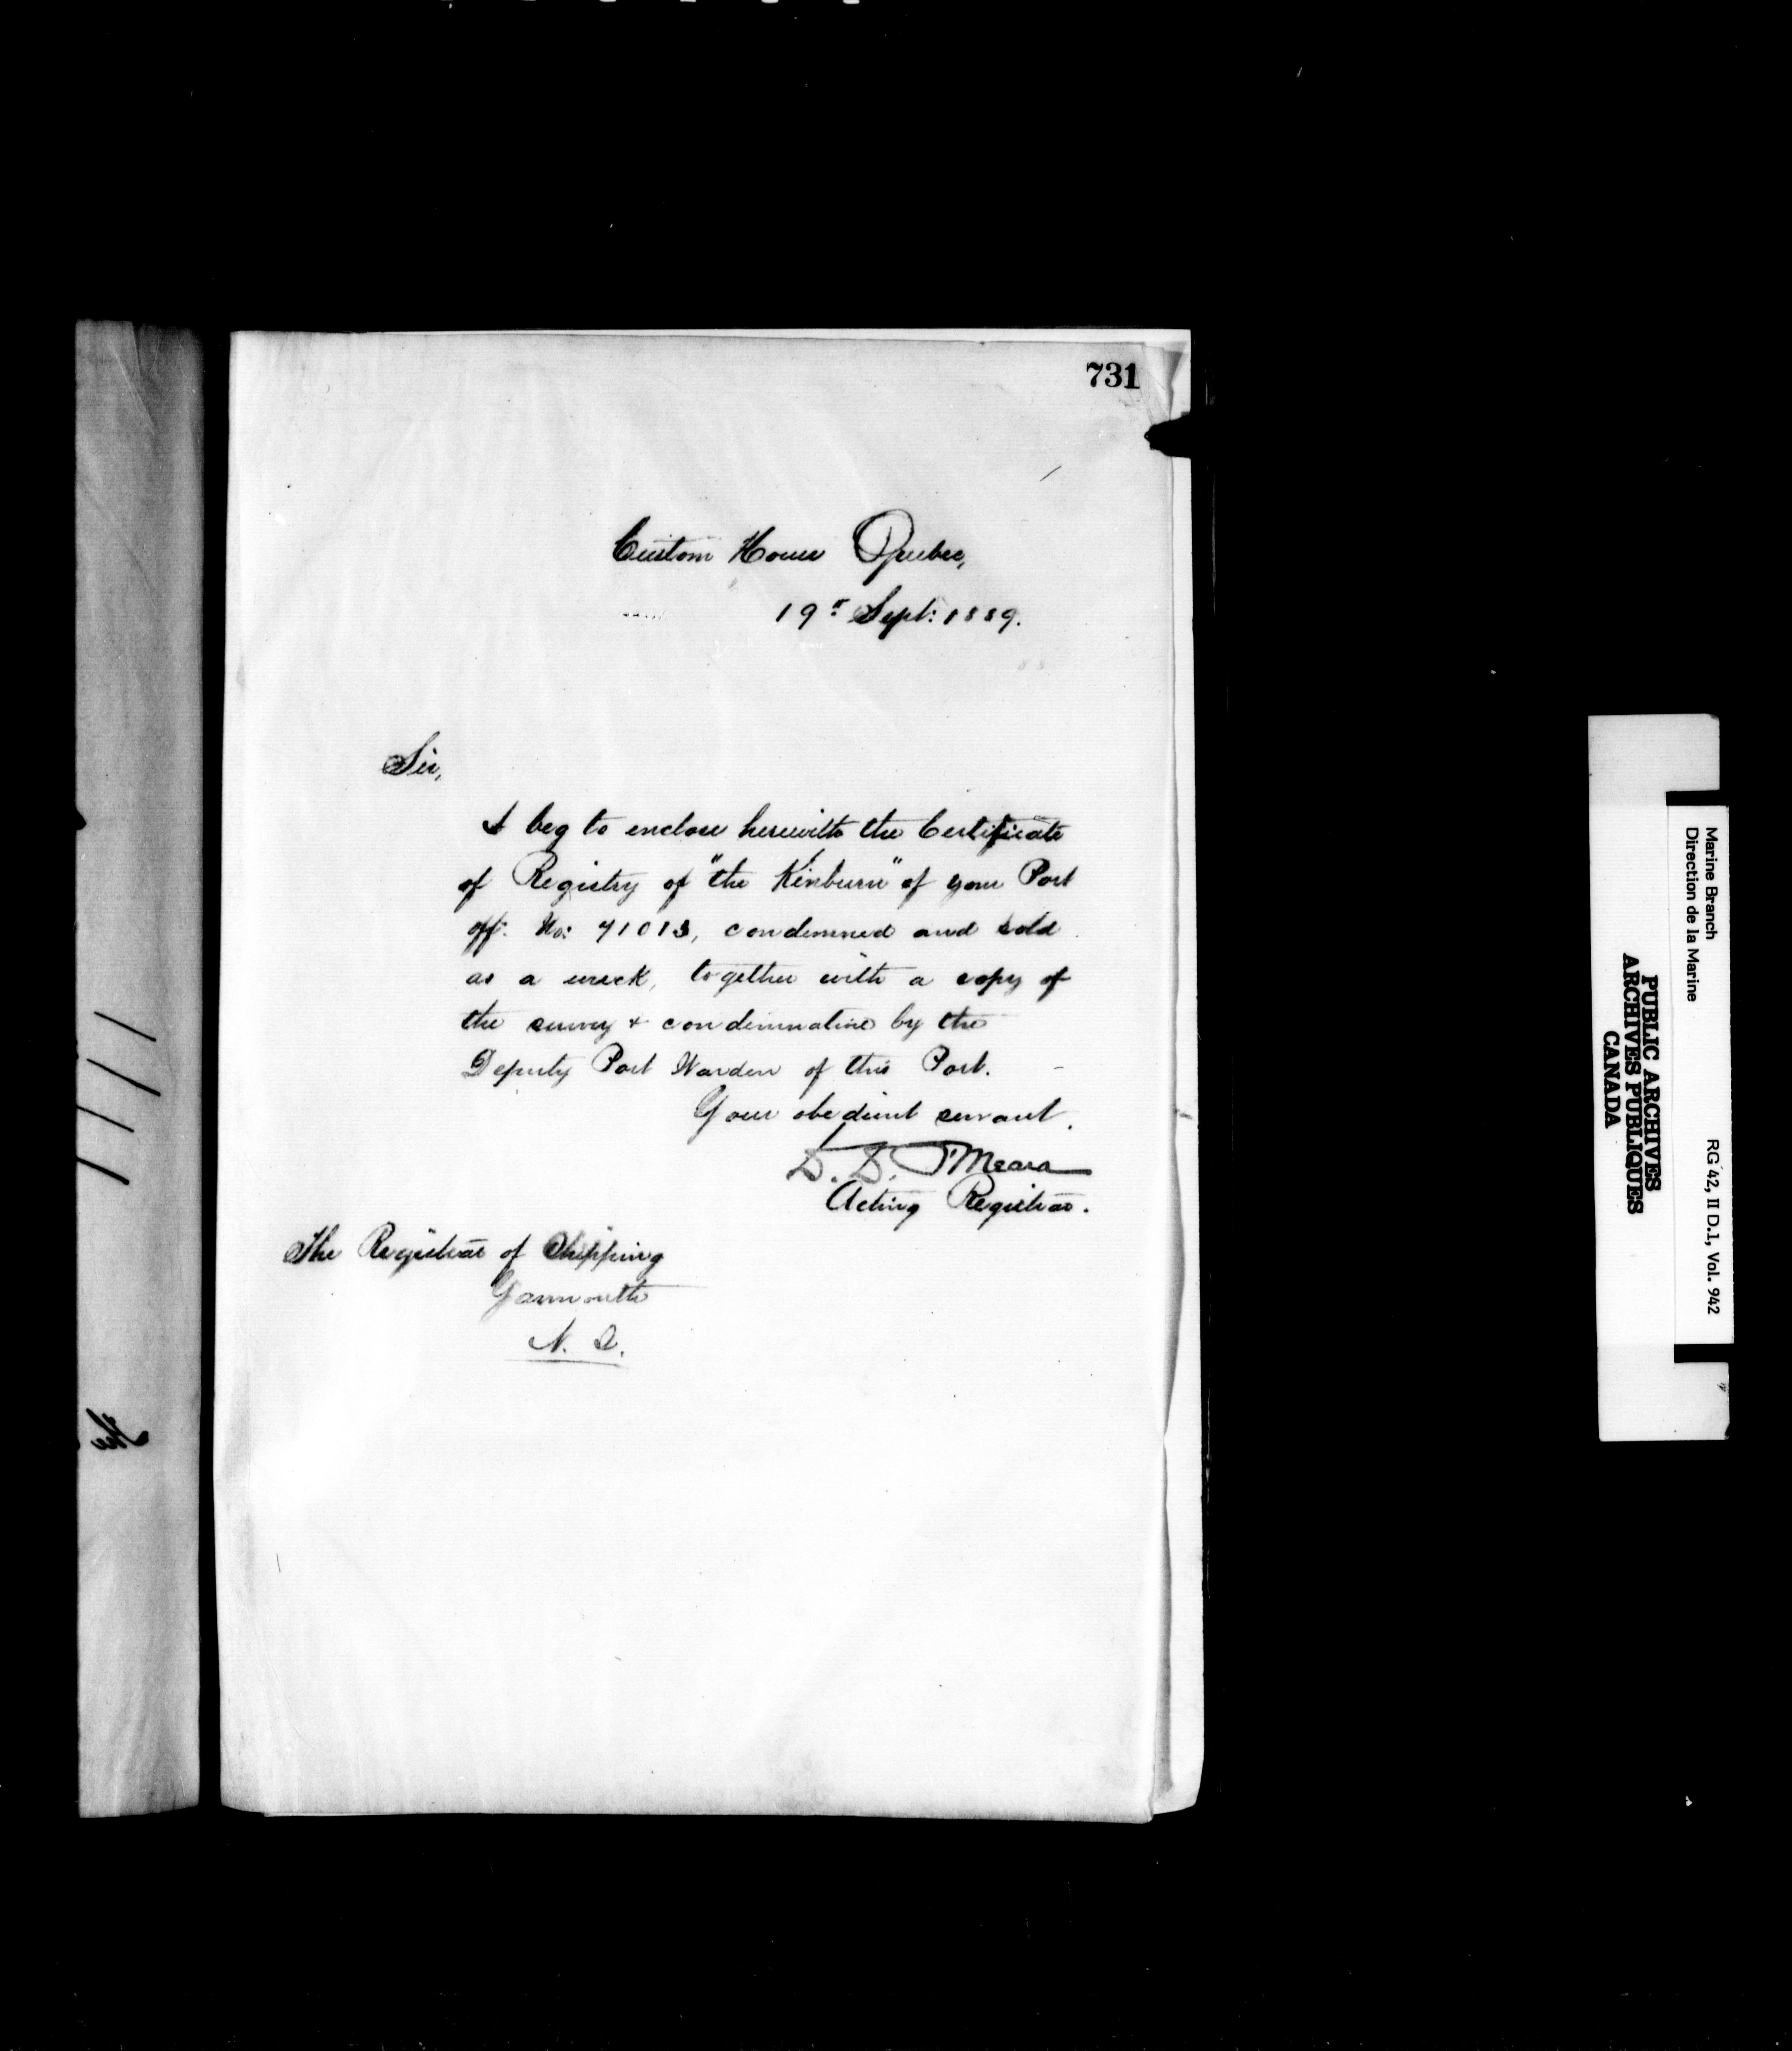 731
Custom House Quebec,
19th Sept: 1889.
Sir,
I beg to enclose herewith the Certificate
of Registry of "the Kinburn" of your Port
off. No: 71013, condemned and sold
as a wreck, together with a copy of
the survey & condemnation by the
Deputy Port Warden of this Port.
Your obedient servant.
D. D. O'Meara
Acting Registrar.
The Registrar of Shipping
Yarmouth
N. S.
The
Marine Branch
Direction de la Marine
RG 42, II D.1, Vol. 942
PUBLIC ARCHIVES
ARCHIVES PUBLIQUES
CANADA